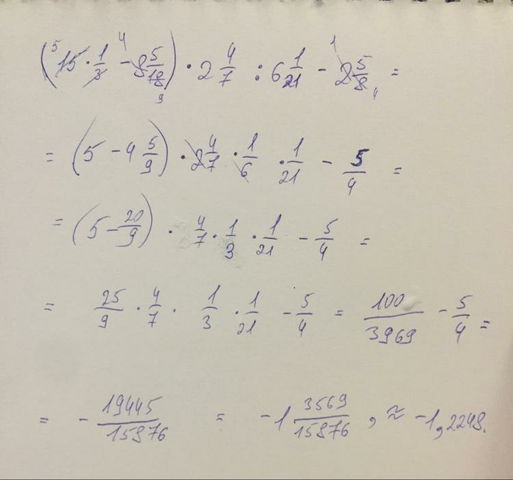 (15 · 1/3 - 8 5/18) · 2 4/7 : 6 1/21 - 2 5/8 =
= (5 - 4 5/9) · 2 4/7 · 1/6 · 1/21 - 5/4 =
= (5 - 20/9) · 4/7 · 1/3 · 1/21 - 5/4 =
= 25/9 · 4/7 · 1/3 · 1/21 - 5/4 = 100/3969 - 5/4 =
= - 19445/15876 = -1 3569/15876, ≈ -1,2248.